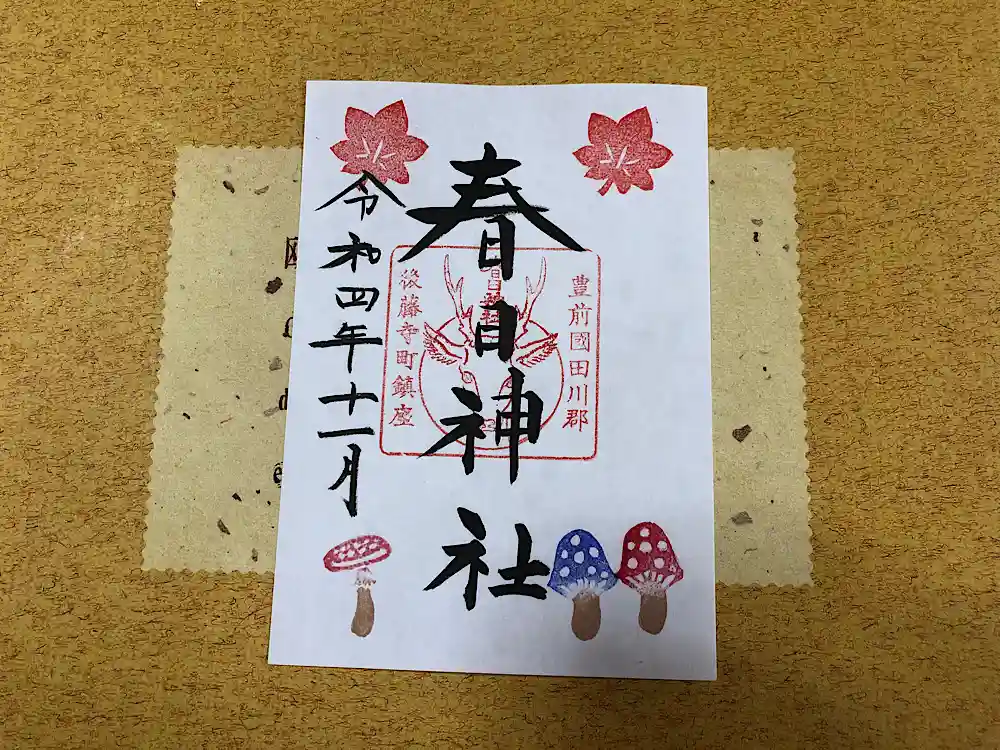 豊前國田川郡
春日神社
後藤寺町鎮座
令和四年十一月